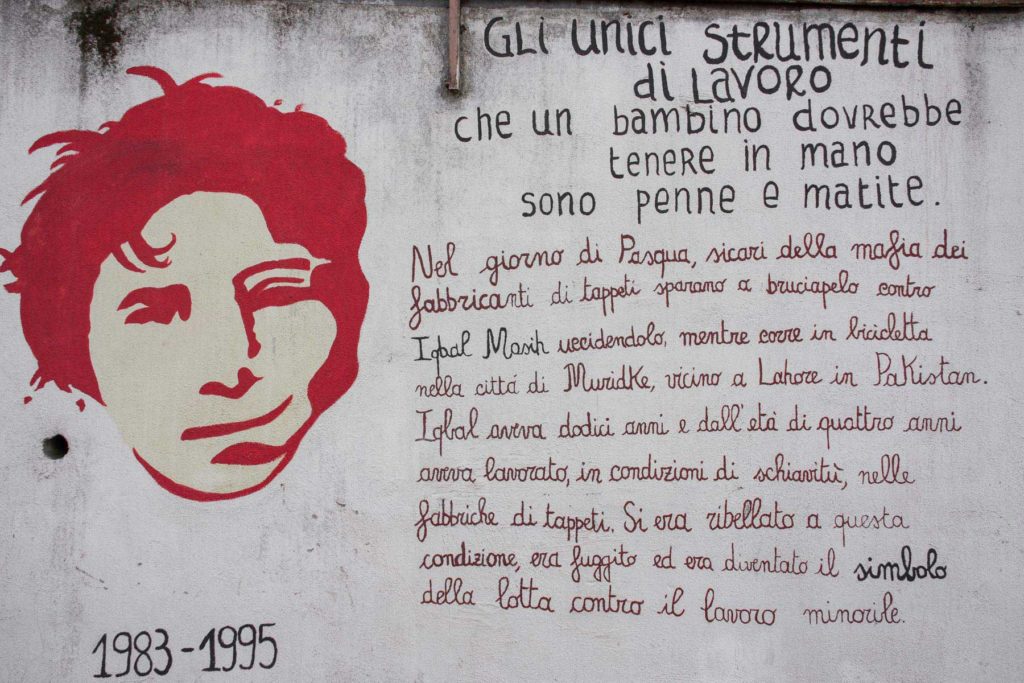 GLI UNICI STRUMENTI
di LAVORO
che un bambino dovrebbe
tenere in mano
sono penne e matite.
Nel giorno di Pasqua, sicari della mafia dei
fabbricanti di tappeti sparano a bruciapelo contro
Iqbal Masih uccidendolo, mentre corre in bicicletta
nella cittá di Muridke, vicino a Lahore in Pakistan.
Iqbal aveva dodici anni e dall'etá di quattro anni
aveva lavorato, in condizioni di schiavitù, nelle
fabbriche di tappeti. Si era ribellato a questa
condizione, era fuggito ed era diventato il simbolo
della lotta contro il lavoro minorile.
1983-1995